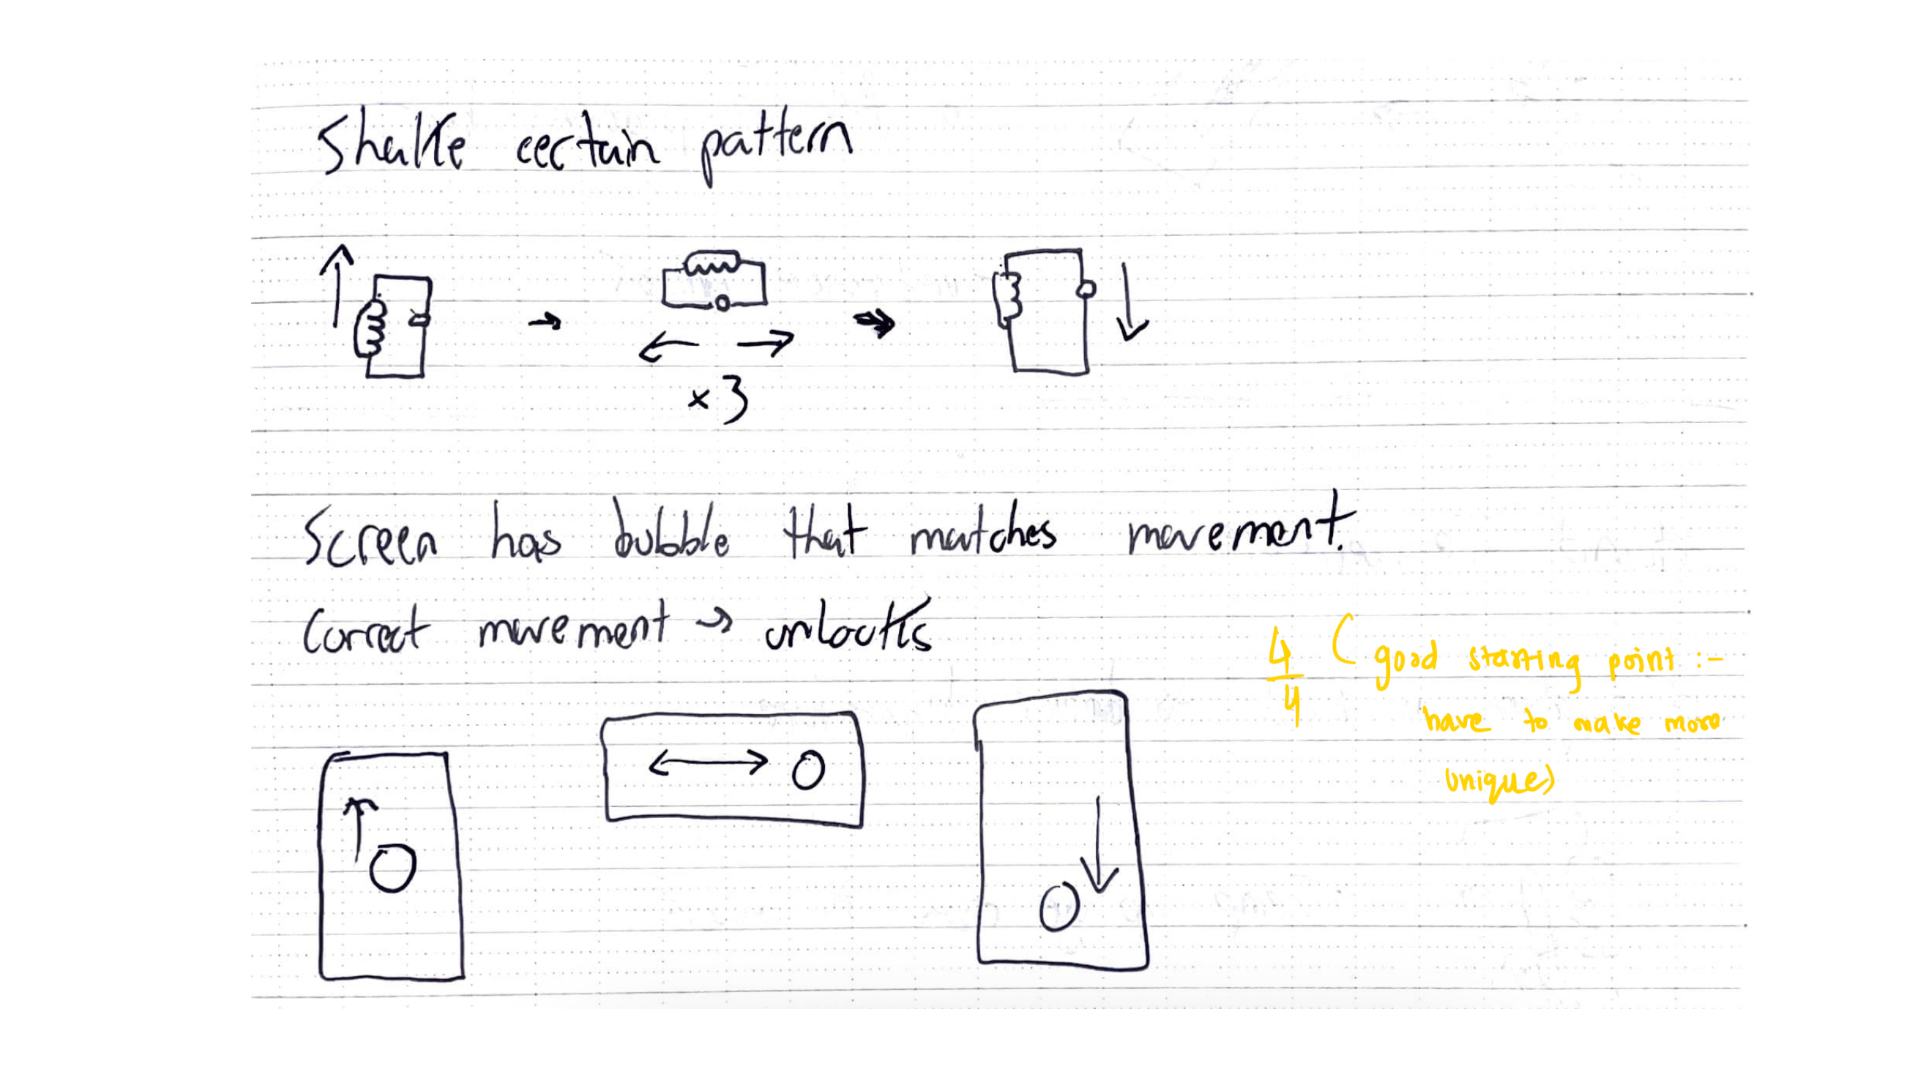 Shake certain pattern
x 3
Screen has bubble that matches movement.
Correct movement → unlocks
4/4 (good starting point :-
have to make more
unique)